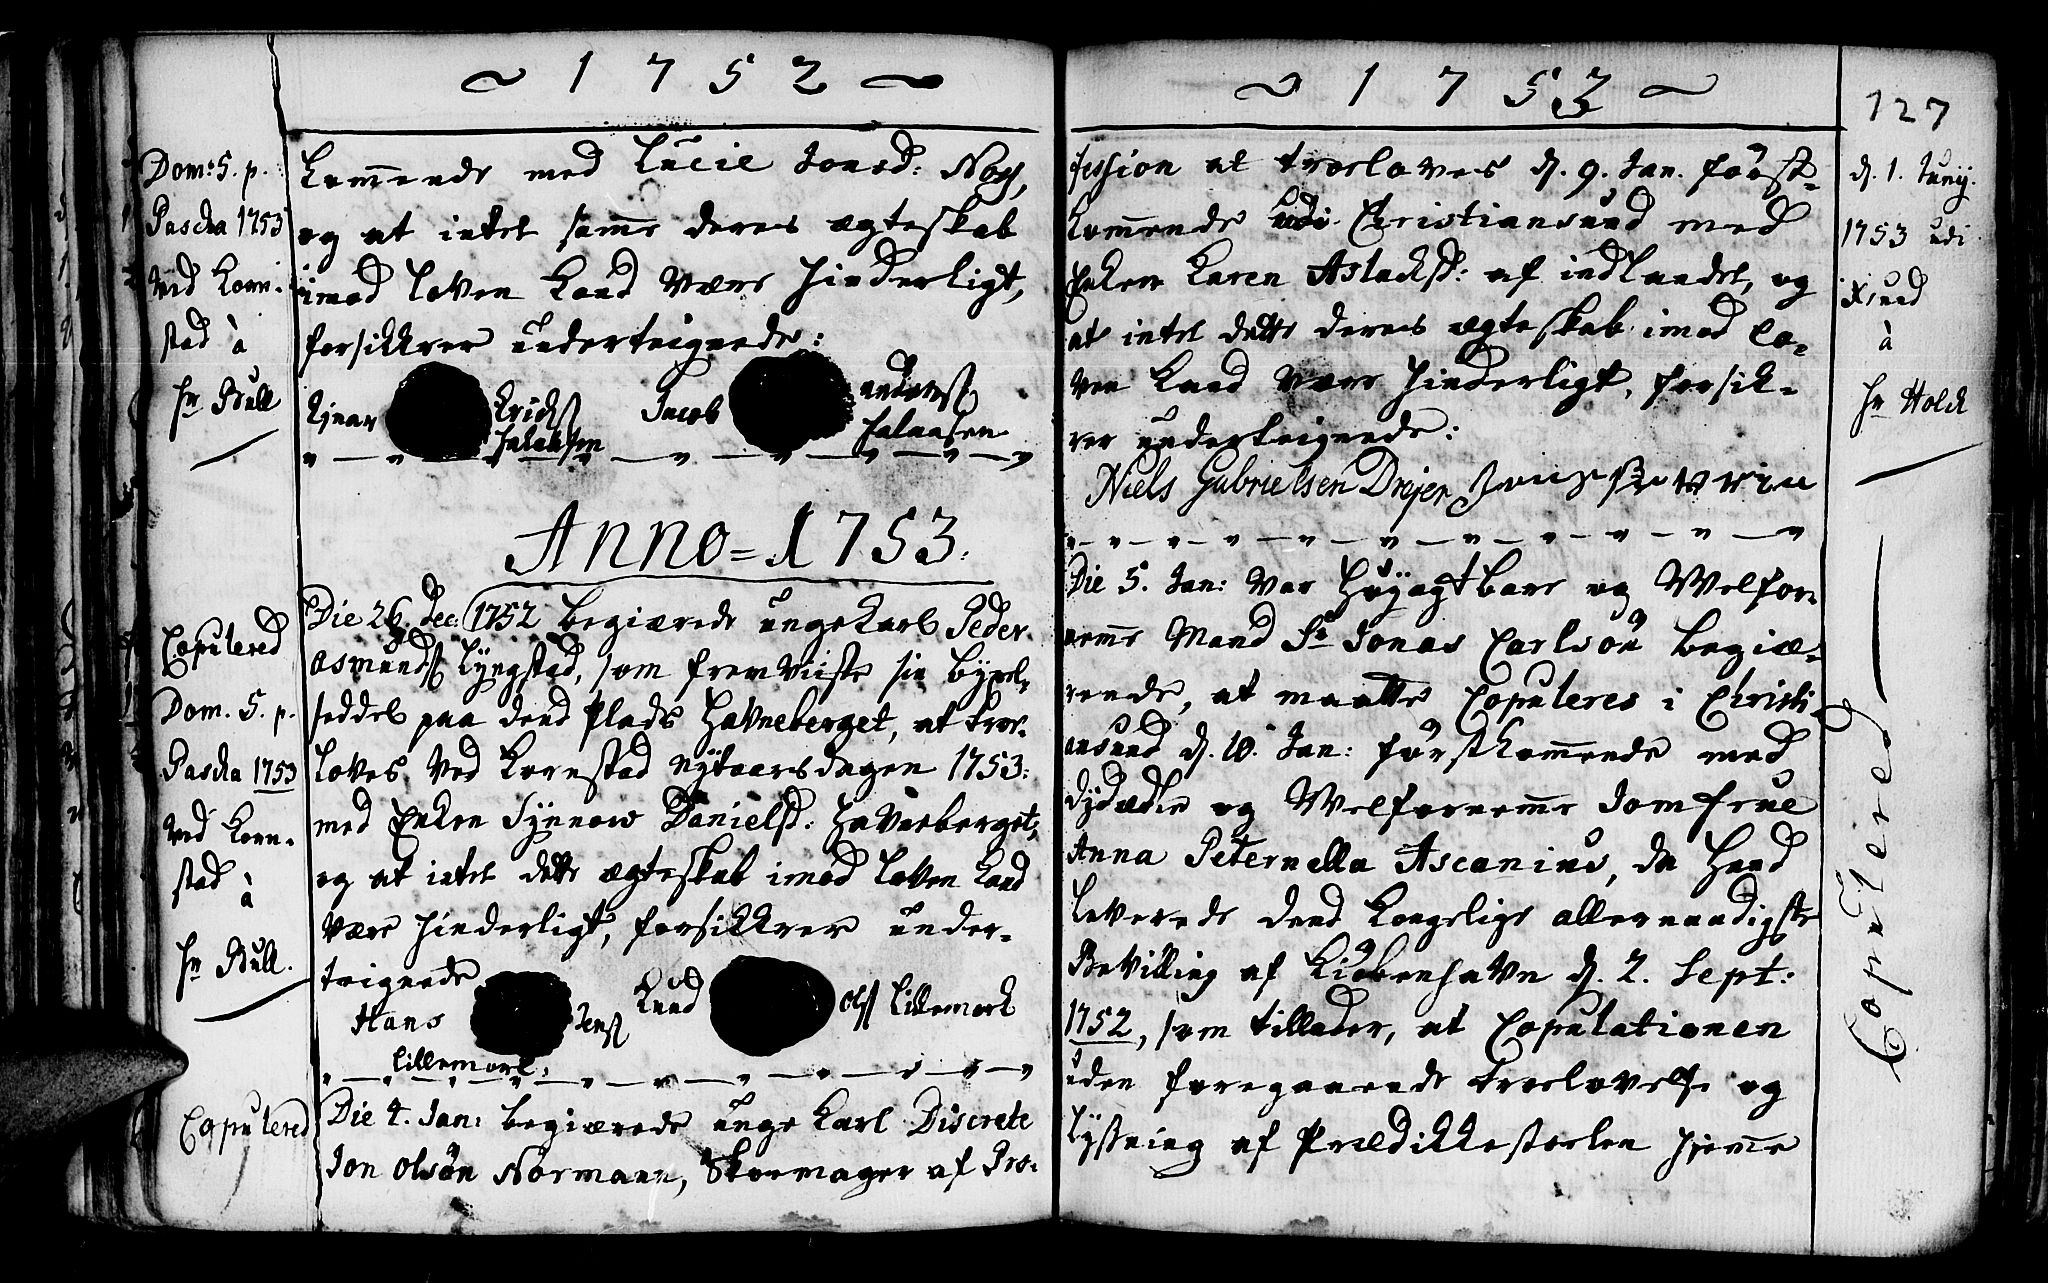 ~ 1 7 5 2 ~
Dom: 5. p.
Pascha 1753
ved Korn-
stad à
Hr Bull
kommende med Lucie Jonsd: Nøs,
og at intet samme deres ægteskab
imod loven kand være hinderligt,
forsikkrer underteignede:
Ejnar Erichs Jacob Anders
Anno = 1753.
Copulered
Dom. 5. p.
Pascha 1753
ved Korn-
stad
à
Hr Bull.
Die 26. Dec: 1752 begiærede unge Karl Peder
Asmunds Lyngstad, som fremviiste sin byxel-
seddel paa dend Plads Havneberget, at troe-
loves ved Kornstad nytaarsdagen 1753:
med Enken Synnøw Danielsd: Havneberget,
og at intet dette ægteskab imod loven kand
være hinderligt, forsikkrer under-
teignede
Hans Jens Knud Ols Lillemork
Lillemork:
Copulered
Die 4. Jan: begiærede unge Karl Discrete
Jon Olsøn Normann, Skoemager af Pro-
~ 1 7 5 3 ~
127
fession at troeloves d. 9. Jan. først-
kommende udi Christiansund med
Enken Karen Aslachsd: af indlandet, og
at intet dette deres ægteskab imod lo-
ven kand være hinderligt, forsik-
rer underteignede:
Niels Gabrielsen Drejer
d. 1. Junij.
1753 udi
Xsund
à
Hr Holck
Die 5. Jan: var Høyagtbare og Welfor-
nemme Mand Sr Jonas Carlsøn begiæ-
rende, at maatte Copuleres i Christi-
ansund d. 10. Jan: førstkommende med
Dydædle og Welfornemme Jomfrue
Anna Peternella Ascanius, da Hand
leverede dend Kongelige allernaadigste
Bevilling af Kiøbenhavn d. 2. Sept:
1752, som tillader, at Copulationen
uden foregaaende troelovelse og
lysning af Prædikkestoelen hjemme
Copulered